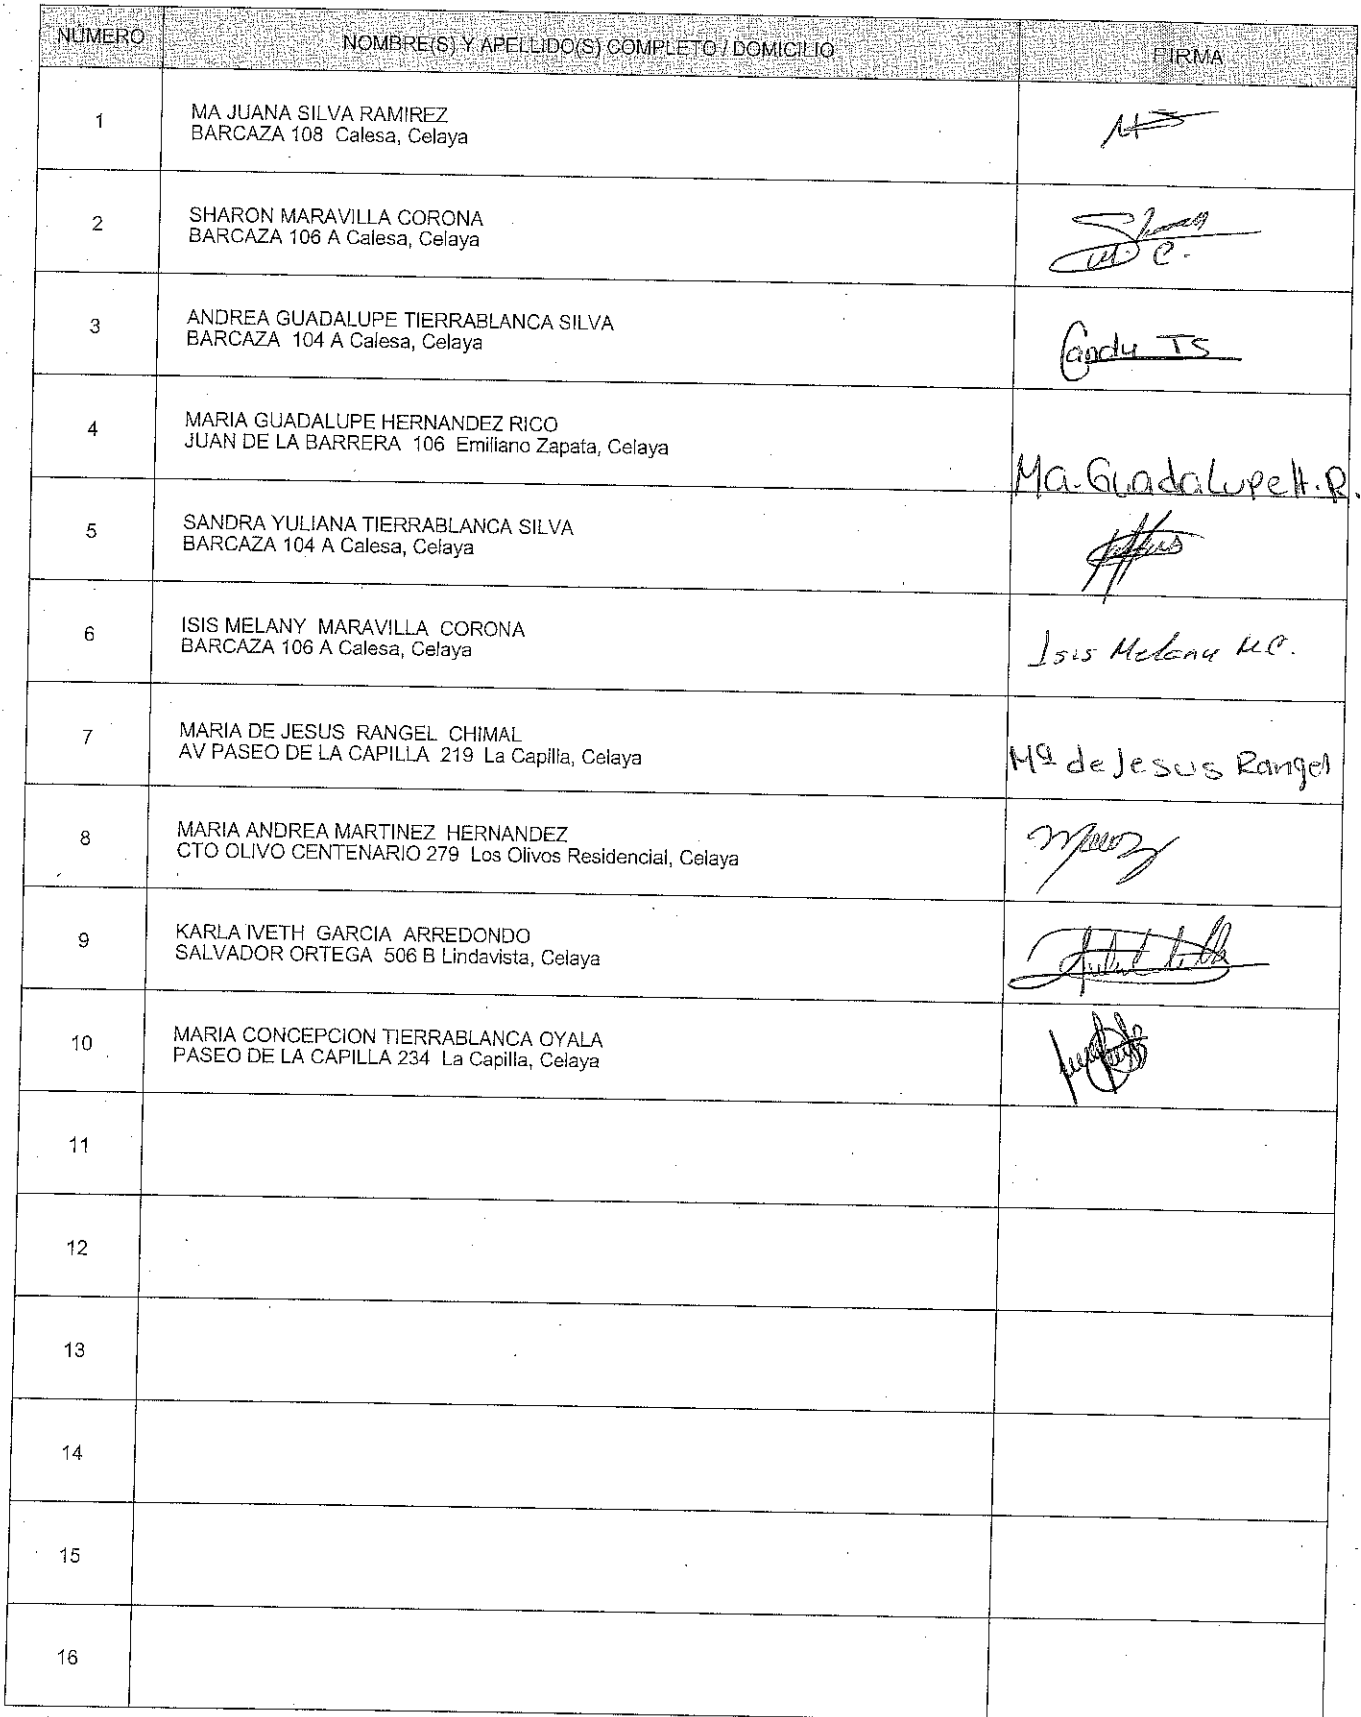 NÚMERO NOMBRE(S) Y APELLIDO(S) COMPLETO / DOMICILIO FIRMA
1 MA JUANA SILVA RAMIREZ
BARCAZA 108 Calesa, Celaya
2 SHARON MARAVILLA CORONA
BARCAZA 106 A Calesa, Celaya
3 ANDREA GUADALUPE TIERRABLANCA SILVA
BARCAZA 104 A Calesa, Celaya
TS
4 MARIA GUADALUPE HERNANDEZ RICO
JUAN DE LA BARRERA 106 Emiliano Zapata, Celaya
Ma. Guadalupe H. R.
5 SANDRA YULIANA TIERRABLANCA SILVA
BARCAZA 104 A Calesa, Celaya
6 ISIS MELANY MARAVILLA CORONA
BARCAZA 106 A Calesa, Celaya
Isis Melany M.C.
7 MARIA DE JESUS RANGEL CHIMAL
AV PASEO DE LA CAPILLA 219 La Capilla, Celaya
Mª de Jesus Rangel
8 MARIA ANDREA MARTINEZ HERNANDEZ
CTO OLIVO CENTENARIO 279 Los Olivos Residencial, Celaya
9 KARLA IVETH GARCIA ARREDONDO
SALVADOR ORTEGA 506 B Lindavista, Celaya
10 MARIA CONCEPCION TIERRABLANCA OYALA
PASEO DE LA CAPILLA 234 La Capilla, Celaya
11
12
13
14
15
16